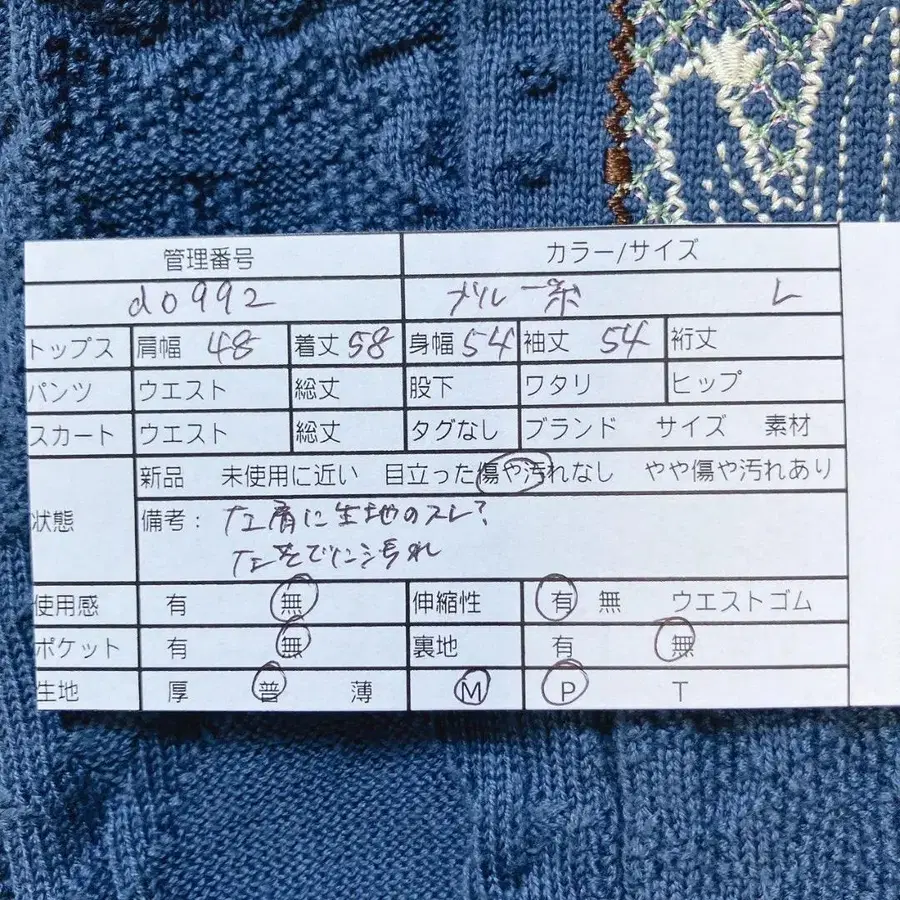 管理番号 カラー/サイズ
d0992 ブルー系 L
トップス 肩幅 48 着丈 58 身幅 54 袖丈 54 裄丈
パンツ ウエスト 総丈 股下 ワタリ ヒップ
スカート ウエスト 総丈 タグなし ブランド サイズ 素材
新品 未使用に近い 目立った傷や汚れなし やや傷や汚れあり
状態 備考: 左肩に生地のスレ?
左そでに汚れ
使用感 有 無 伸縮性 有 無 ウエストゴム
ポケット 有 無 裏地 有 無
生地 厚 普 薄 M P T